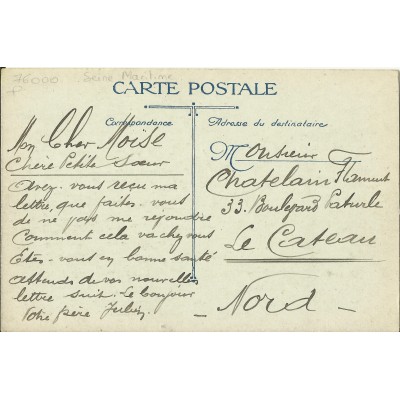 76000 Seine Maritime
CARTE POSTALE
Correspondance
Adresse du destinataire
Mon Cher Moïse
Chère Petite Sœur
Avez-vous reçu ma
lettre, que faites-vous
de ne pas me rejoindre
Comment cela va chez vous
Etes-vous en bonne santé
attends de vos nouvelles
lettre suit. Le bonjour
Votre frère
Monsieur
Chatelain Flament
33. Boulevard Paturle
Le Cateau
- Nord -